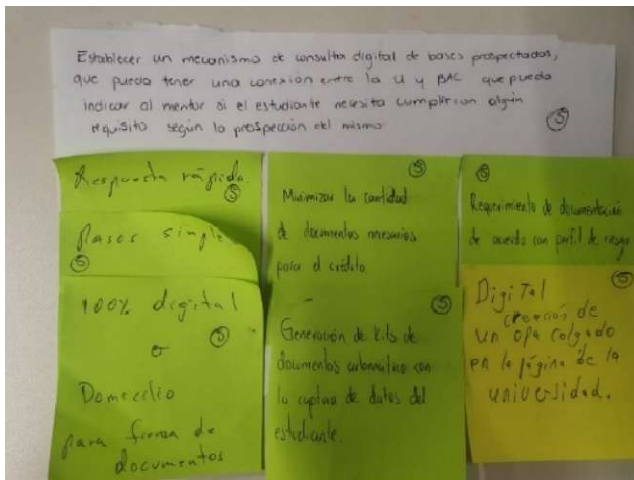 Establecer un mecanismo de consulta digital de bases prospectadas,
que pueda tener una conexión entre la U y BAC que pueda
indicar al mentor si el estudiante necesita cumplir con algún
requisito según la prospección del mismo
5
Respuesta rápida
5
Pasos simple
5
100% digital
o
5
Domicilio
para firma de
documentos
5
Minimizar la cantidad
de documentos necesarios
para el crédito
5
Generación de kits de
documentos automático con
la captura de datos del
estudiante.
5
Requerimiento de documentación
de acuerdo con perfil de riesgo
5
Digital
creación de
un opa colgado
en la página de la
universidad.